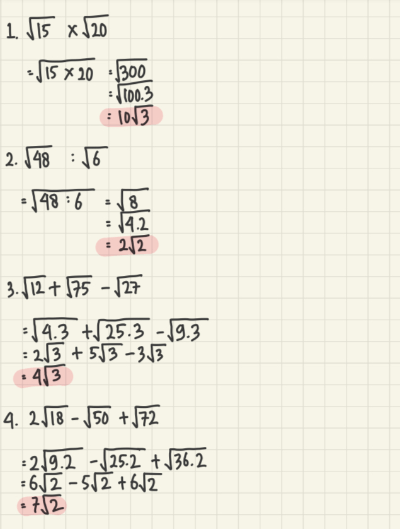 1. √15 × √20
= √15 × 20 = √300
= √100.3
= 10√3
2. √48 : √6
= √48 : 6 = √8
= √4.2
= 2√2
3. √12 + √75 - √27
= √4.3 + √25.3 - √9.3
= 2√3 + 5√3 - 3√3
= 4√3
4. 2√18 - √50 + √72
= 2√9.2 - √25.2 + √36.2
= 6√2 - 5√2 + 6√2
= 7√2